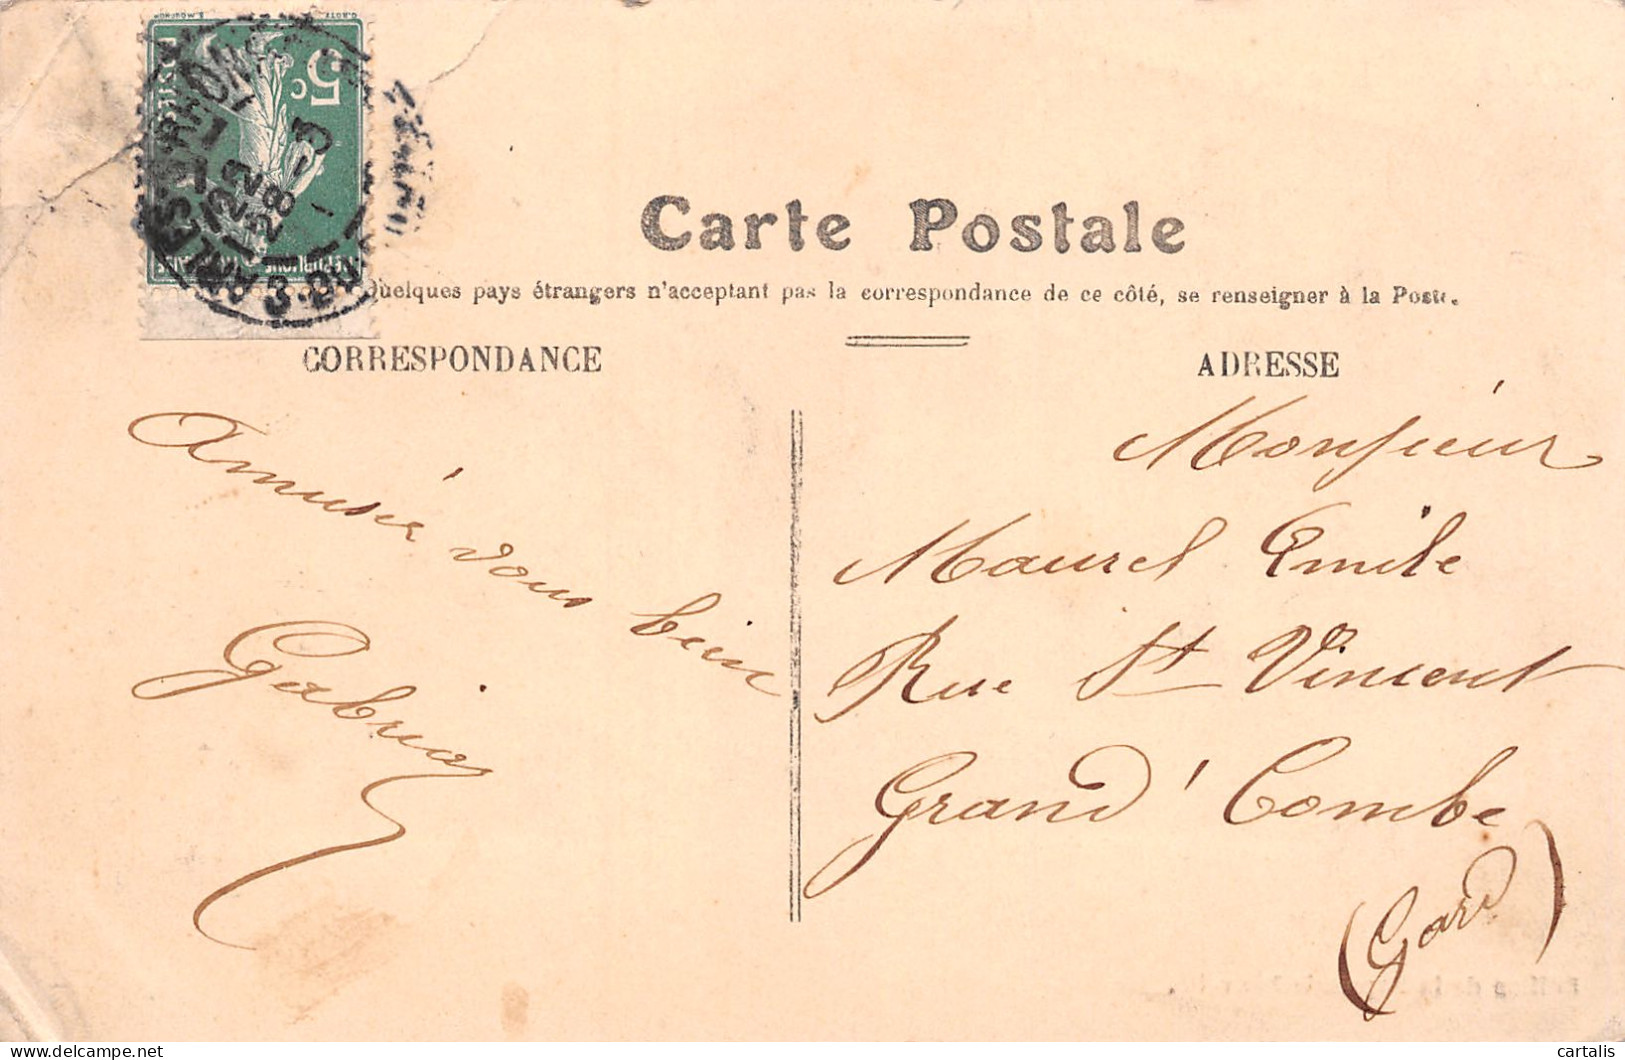 5c
POSTES
ARLES-S-RHONE
1 22
28 - 3
Carte Postale
Quelques pays étrangers n'acceptant pas la correspondance de ce côté, se renseigner à la Poste.
CORRESPONDANCE
ADRESSE
Amusez vous bien
Gabriel
Monsieur
Maurel Emile
Rue St Vincent
Grand' Combe
(Gard)
cartalis